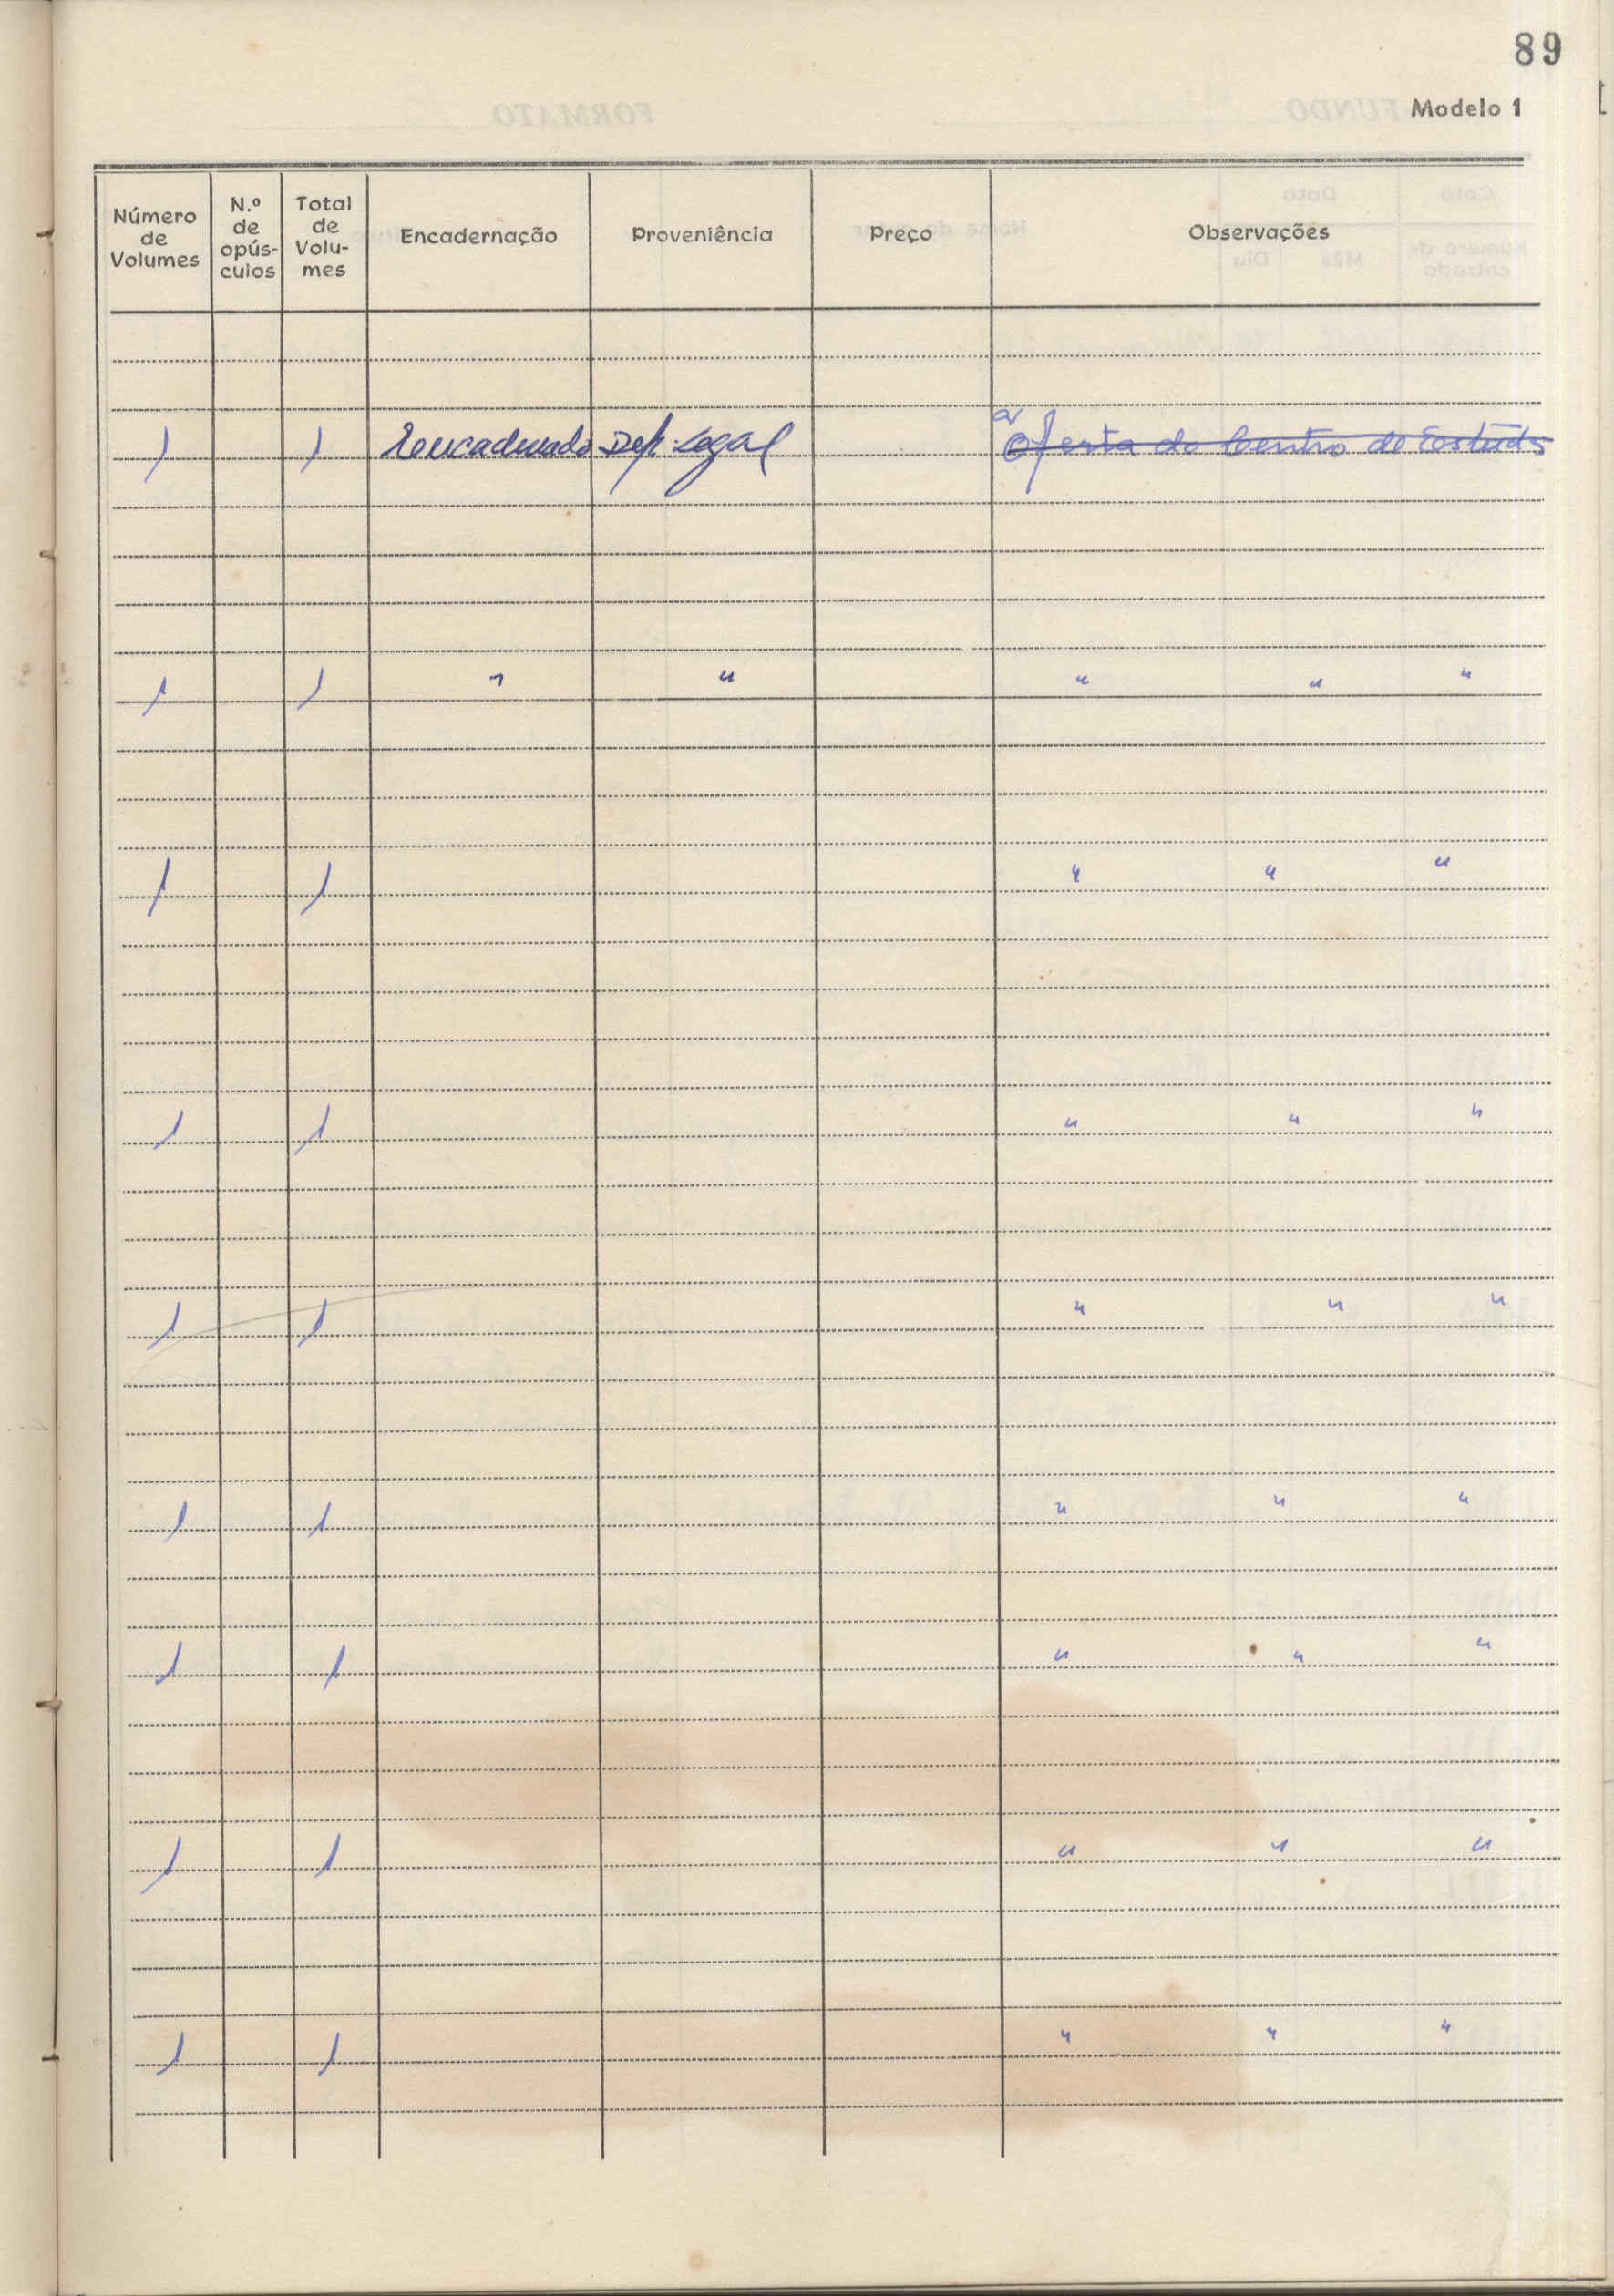 89
Modelo 1
Número de Volumes | N.º de opús-culos | Total de Volu-mes | Encadernação | Proveniência | Preço | Observações
1 | | 1 | Encadernado | Dep. Legal | | a) Oferta do Centro de Estudos
1 | | 1 | " | " | | " " "
1 | | 1 | | | | " " "
1 | | 1 | | | | " " "
1 | | 1 | | | | " " "
1 | | 1 | | | | " " "
1 | | 1 | | | | " " "
1 | | 1 | | | | " " "
1 | | 1 | | | | " " "